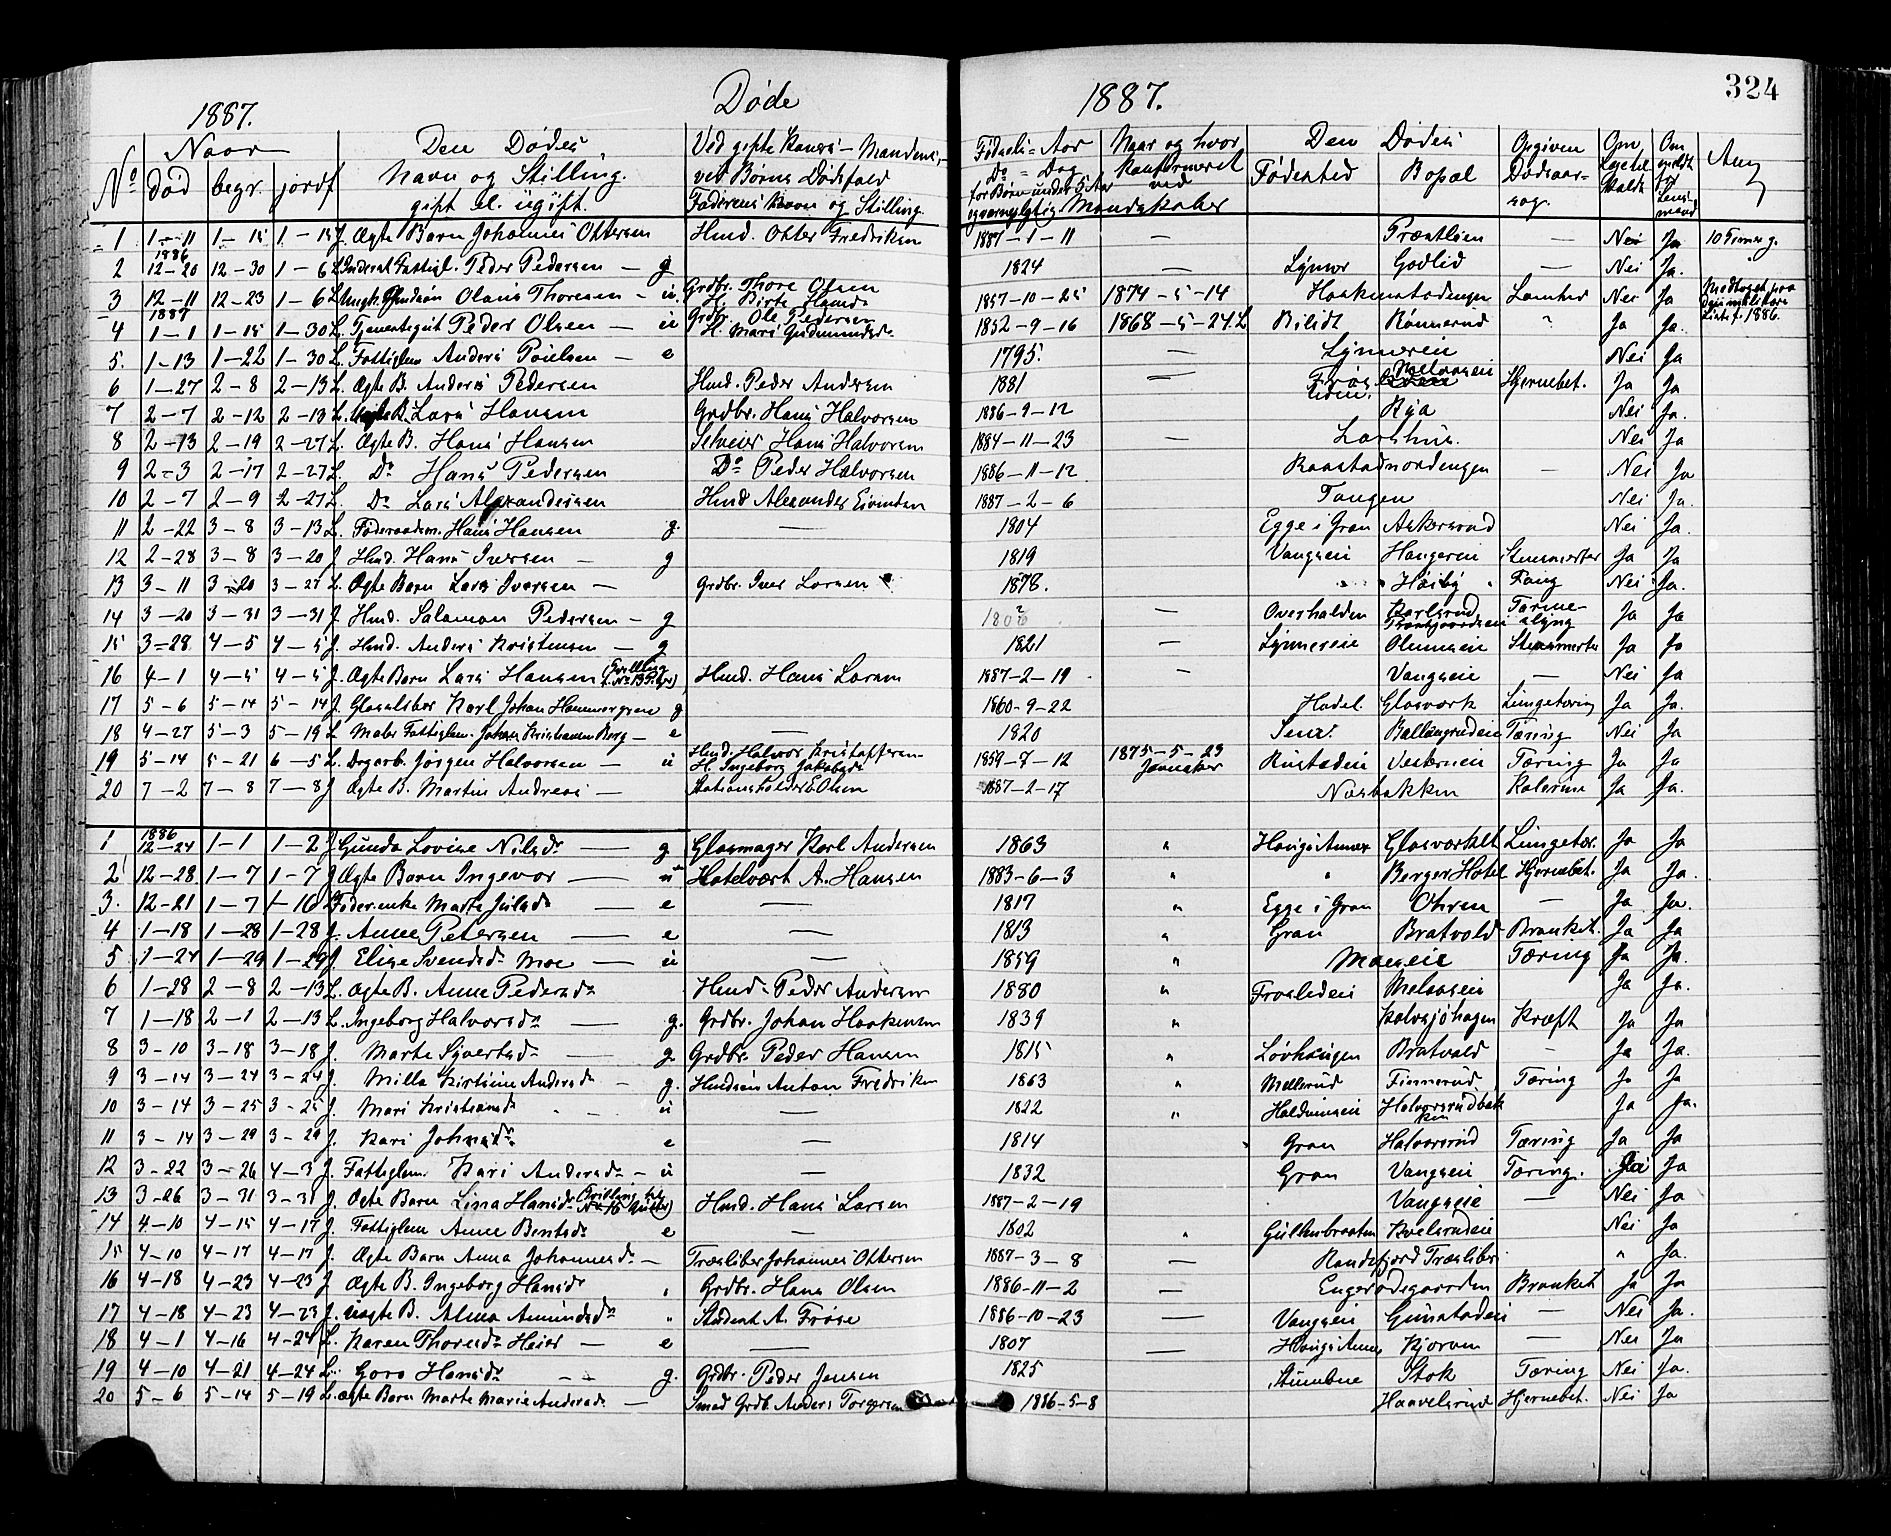 324
1887. Døde 1887.
No Naar Den Dødes Ved gifte Koners Mandens, Fødsels-Aar Naar og hvor Den Dødes Opgiven Om Om Anm
død begr. jordf Navn og Stilling. ved Børns Dødsfald Do - Dag konfirmeret Fødested Bopæl Dødsaar- Lægetilkaldt anmeldt for Lensmand
gift el. ugift. Faderens Navn og Stilling. for Børn under 5 Aar ved Mandskaber sag.
1 1-11 1-15 1-15 J. Ægte Barn Johannes Ottersen Hmd. Otter Fredriksen 1887-1-11 — — Nei Ja 10 Timer g.
2 1886 12-20 12-30 1-6 L. Fattigl. Peder Pedersen — g 1824 — Lynner Godlid — Nei Ja.
3 12-11 12-23 1-6 L. Olaus Thoresen - u. Grdbr. Thore Olsen H. Birte Hansd. 1857-10-25 1874-5-14 Haakenstadengen Nei Ja
4 1887 1-1 1-15 1-30 L. Tjenestegut Peder Olsen — u Grdbr. Ole Pedersen H. Mari Gudmundsd. 1852-9-16 1868-5-24 L Bilidt Rønnerud " Ja Ja.
5. 1-13 1-22 1-30 L. Fattiglem Anders Poulsen — e 1795. — Lynnereie Nei Ja
6 1-27 2-8 2-13 L. Ægte B. Anders Pedersen Hmd. Peder Andersen 1881 — Melaaseie Hjernebet. Ja Ja
7 2-7 2-12 2-13 L. B. Lars Hansen Grdbr. Hans Halvorsen 1886-9-12 Rya Nei Ja.
8 2-13 2-19 2-27 L. Ægte B. Hans Hansen Selveier Hans Halvorsen 1884-11-23 — Larshus. Nei Ja
9 2-3 2-17 2-27 L. Do Hans Pedersen Do Peder Halvorsen 1886-11-12 Raastadnordengen — Nei Ja
10 2-7 2-9 2-27 L. Do Lars Alexandersen Hmd Alexander Eivindsen 1887-2-6 Tangen Nei Ja.
11 2-22 3-8 3-13 L. Føderaadsm. Hans Hansen g — 1804 Egge i Gran Askersrud Nei Ja.
12 2-28 3-8 3-20 J. Hmd. Hans Iversen — g 1819 Vangseie Haugereie Ja Ja
13 3-11 3-20 3-27 L. Ægte Barn Lars Iversen — Grdbr. Iver Larsen 1878. " Høiby " Nei Ja.
14 3-20 3-31 3-31 J. Hmd. Salamon Pedersen — g — Overhalden Ja Ja
15 3-28 4-5 4-5 J. Hmd. Anders Kristensen — g 1821 — Lynnereie Olumseie Ja Ja
16 4-1 4-5 4-5 J. Ægte Barn Lars Hansen (Tvilling f. No 13 Piger) Hmd. Hans Larsen 1887-2-19 — Vangseie — Nei Ja
17 5-6 5-14 5-14 J. Glassliber Karl Johan Hammergren g 1860-9-22 Hadel. Glasværk Lungetæring Ja Ja.
18 4-27 5-3 5-19 L. Maler Fattiglem. Johan Kristiansen Borg — e — 1820 Ballangrudeie Tæring Nei Ja
19 5-14 5-21 6-5 L. Dagarb. Jörgen Halvorsen — u Hmd. Halvor Kristoffersen H. Ingeborg Jakobsd. 1859-7-12 1875-5-23 Jevnaker Rustadeie Vesterneie Tæring Ja Ja
20 7-2 7-8 7-8 J Ægte B. Martin Andreas — Stationsholder E. Olsen 1887-2-17 Næsbakken Kolerine Ja Ja.
1 1886 12-24 1-1 1-2 J Gunda Lovise Nilsd. — g Glasmager Karl Andersen 1863 " Haugs Annex Glasværket Lungetær. Ja Ja
2 12-28 1-7 1-7 J Ægte Barn Ingevor — u Hotelvært A. Hansen 1883-6-3 " " Berger Hotel Hjernebet. Ja Ja.
3. 12-21 1-7 1-16 J Føder.enke Marte Julsd. — e — 1817 " Egge i Gran Ohren — Ja Ja.
4 1-18 1-28 1-28 J. Anne Petersen — e — 1813 " Gran Bratvold Bronket. Ja Ja
5 1-24 1-29 1-29 J. Elise Svendsd. Moe — u — 1859 " Moeseie Tæring Ja Ja.
6 1-28 2-8 2-13 L. Ægte B. Anne Pedersd. Hmd. Peder Andersen 1880 " Froslideie Melaaseie Ja Ja.
7 1-18 2-1 2-13 L. Ingeborg Halvorsd. — g. Grdbr. Johan Haakensen 1839 " Kalvsjöhagen Kræft Ja Ja
8 3-10 3-18 3-18 J. Marte Syversd. — g Grdbr. Peder Hansen 1815 " Løvhaugen Bratvold — Ja Ja.
9 3-14 3-24 3-24 J. Milla Kirstine Andersd. — g. Hmdssøn Anton Fredriksen 1863 " Mellerud Finnerud Tæring Ja Ja
10 3-14 3-25 3-25 J. Mari Kristiansd. — u — 1822 " Haldumseie Halvorsrudbakken Ja Ja.
11 3-14 3-29 3-29 J. Kari Johnsd. e — 1814 Gran Halvorsrud Tæring Ja Ja
12 3-22 3-26 4-3 J. Fattiglem. Kari Andersd. — u — 1832 Gran Vangseie Tæring. Ja Ja
13 3-26 3-31 3-31 J. Ægte Barn Lina Hansd. (Tvilling til No 16 Gutter) Hmd. Hans Larsen 1887-2-19 Vangseie — Nei Ja
14 4-10 4-15 4-17 J. Fattiglem Anne Bentsd. e — 1802 " Gulhusbraaten Kvelsrudeie Nei Ja
15 4-10 4-17 4-17 J. Ægte Barn Anna Johannesd. — Træsliber Johannes Ottersen 1887-3-8 — Randsfjord Træsliberi " Ja.
16 4-18 4-23 4-23 J Ægte B. Ingeborg Hansd. " Grdbr. Hans Olsen 1886-11-2 — Engerodsgaarden Bronket Ja Ja
17 4-18 4-23 4-23 J. Uægte B. Alma Amundsd. " Student A. Frøse 1886-10-23 — Vangseie Gunstadeie — Nei Ja.
18 4-1 4-16 4-24 L. Karen Thoresd. Heier — e — 1807 — Haugs Annex Kjørven — Nei Ja
19 4-10 4-21 4-24 L. Goro Hansd. — g. Grdbr. Peder Jensen 1825 Stumne Stok Tæring Nei Ja.
20 5-6 5-14 5-19 L. Ægte Barn Marte Marie Andersd. — Smed Grdb. Anders Torgersen 1886-5-8 Haavelsrud Hjernebet. Nei Ja